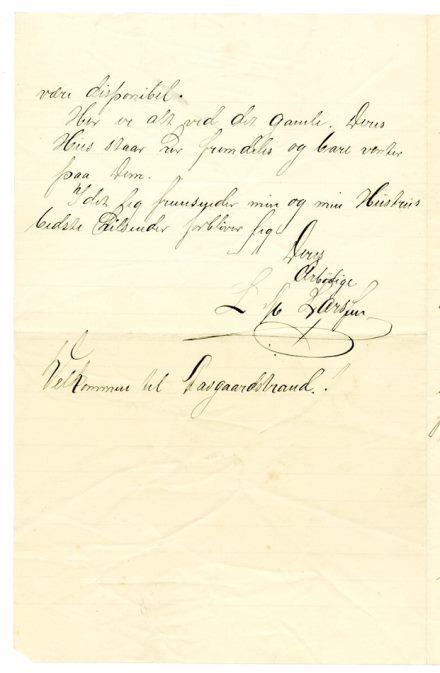 være disponibel.
Her er alt ved det gamle. Deres
Hus staar her fremdeles og bare venter
paa Dem.
Idet jeg fremsender min og min Hustrus
bedste Hilsener forbliver jeg
Deres
Ærbødige
L Larsen
Velkommen til Aasgaardstrand.!